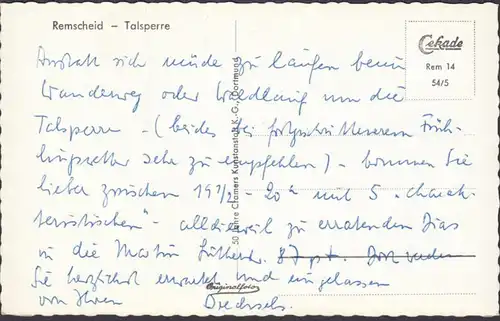 Remscheid – Talsperre
Cekade
Rem 14
54/5
Anstatt sich müde zu laufen beim
Wanderweg oder Waldlauf um die
Talsperre - (beides bei fortgeschrittenerem Früh-
lingswetter sehr zu empfehlen) - kommen Sie
lieber zwischen 19½ - 20 mit 5 „charak-
teristischen" - alldieweil zu erratenden Dias
in die Martin Lutherstr. Dort werden
Sie herzlichst erwartet und eingelassen
von Ihren Drechsels.
50 Jahre Cramers Kunstanstalt K.-G., Dortmund
Originalfoto